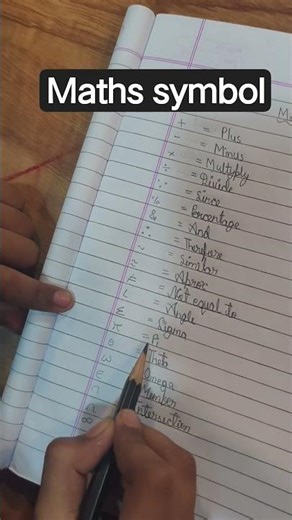 Maths symbol
+ = Plus
- = Minus
× = Multiply
÷ = Divide
∵ = Since
% = Percentage
& = And
∴ = Therefore
~ = Similar
≈ = Aprox
≠ = Not equal to
∠ = Angle
Σ = Sigma
π = Pi
θ = Theta
ω = Omega
∈ = Member
∩ = Intersection
∞